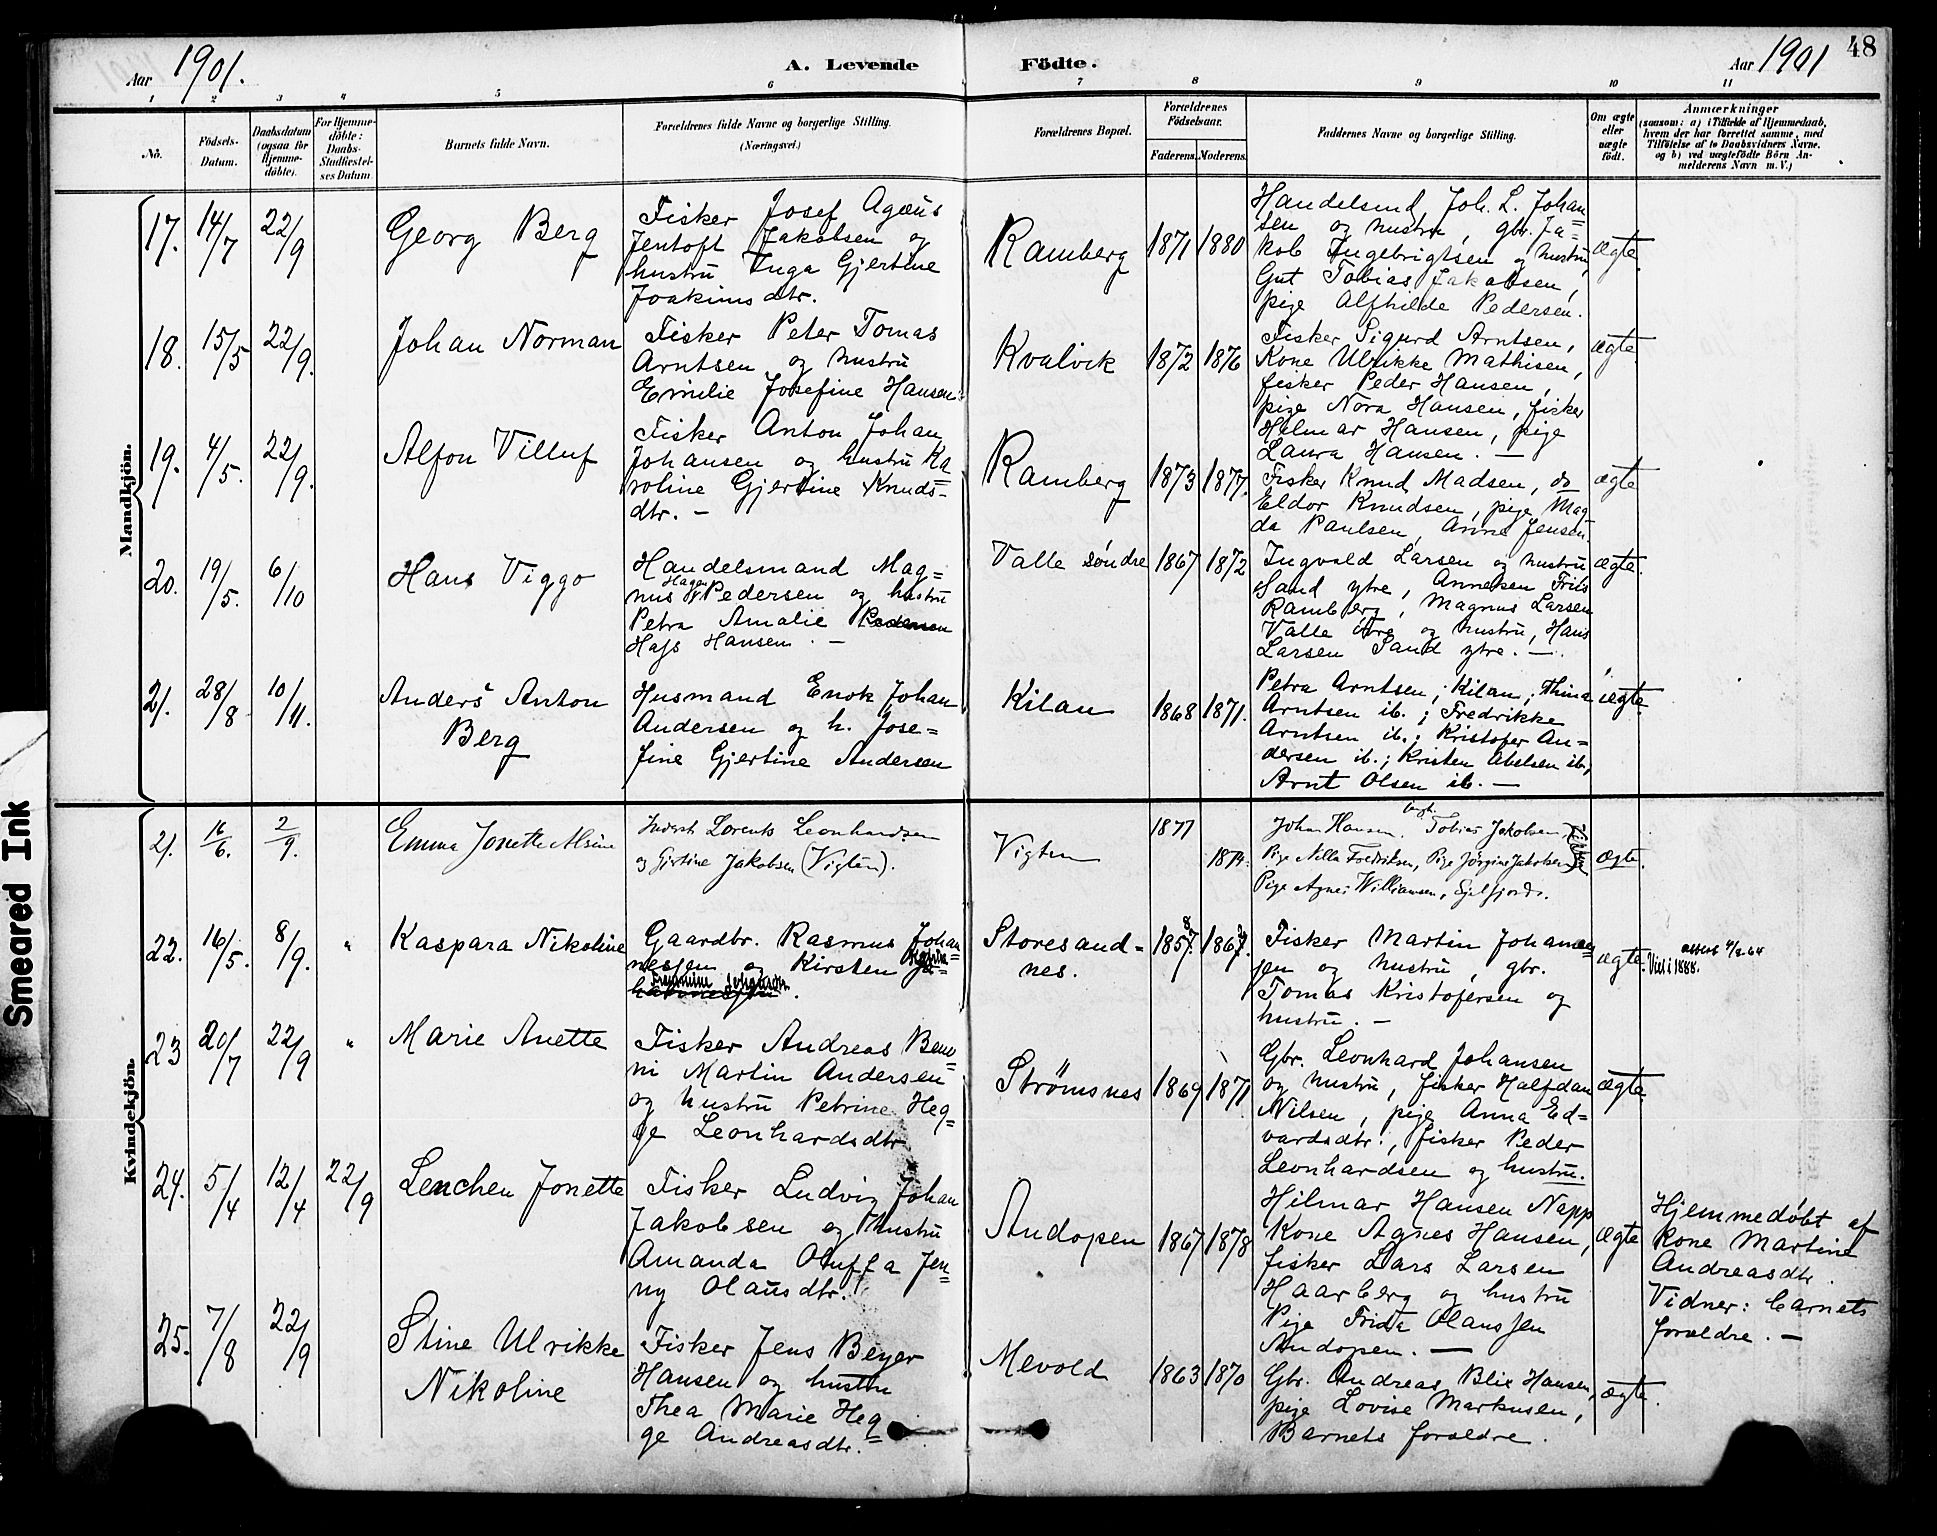 Aar 1901.
A. Levende
Födte.
Aar 1901
48
1 2 3 4 5 6 7 8 9 10 11
No.
Födsels-
Datum.
Daabsdatum
(ogsaa for
Hjemme-
döbte).
For Hjemme-
döbte:
Daabs-
Stadfæstel-
ses Datum.
Barnets fulde Navn.
Forældrenes fulde Navne og borgerlige Stilling.
(Næringsvei.)
Forældrenes Bopæl.
Forældrenes
Födselsaar.
Faderens. Moderens.
Faddernes Navne og borgerlige Stilling.
Om ægte
eller
uægte
födt.
Anmærkninger
(saasom: a) i Tilfælde af Hjemmedaab,
hvem der har forrettet samme, med
Tilföielse af to Daabsvidners Navne.
og b) ved uægtefödte Börn An-
melderens Navn m. V.)
Mandkjön.
17. 14/7 22/9
Georg Berg
Fisker Josef Agæus
Jentoft Jakobsen og
hustru Inga Gjertine
Joakimsdtr.
Ramberg
1871 1880
Handelsmd Joh. L. Johan=
sen og hustru, gbr. Ja=
kob Ingebrigtsen og hustru,
Gut Tobias Jakobsen,
pige Alfhilde Pedersen.
ægte.
18. 15/5 22/9.
Johan Norman
Fisker Peter Tomas
Arntsen og hustru
Emilie Josefine Hansen.
Kvalvik
1872 1876
Fisker Sigurd Arntsen,
Kone Ulrikke Mathisen,
fisker Peder Hansen,
pige Nora Hansen, fisker
Hilmar Hansen, pige
Laura Hansen. —
ægte.
19. 4/5. 22/9.
Alfon Villuf
Fisker Anton Johan
Johansen og hustru Ka=
roline Gjertine Knuds-
dtr. —
Ramberg
1873 1877.
Fisker Knud Madsen, do
Eldor Knudsen, pige Mag=
da Paulsen, Anne Jensen
ægte
20. 19/5. 6/10
Hans Viggo
Handelsmand Mag=
Hagen
nus Pedersen og hustru
Petra Amalie Pedersen
Hass Hansen. —
Valle söndre
1867 1872
Ingvald Larsen og hustru
Sand ytre, Anneken Friis
Ramberg, Magnus Larsen
Valle övre og hustru, Hans
Larsen Sand ytre. —
ægte.
21. 28/8 10/11.
Anders Anton
Berg
Husmand Enok Johan
Andersen og h. Jose=
fine Gjertine Andersen
Kilan
1868 1871.
Petra Arntsen; Kilan; Thina
Arntsen ib.; Fredrikke
Arntsen ib.; Kristofer An=
dersen ib.; Kristen Abelsen ib;
Arnt Olsen ib. —
ægte.
Kvindekjön.
21. 16/6. 2/9.
Emma Jonette Alsine
Inderst Lorents Leonhardsen
og Girtine Jakobsen (Vigten).
Vigten
1877
1874.
Johan Hansen. Tobias Jakobsen
Pige Nella Fredriksen, Pige Jörgine Jakobsen
Pige Agnes Williamsen, Sjelfjord.
ægte.
22. 16/5. 8/9. "
Kaspara Nikoline
Gaardbr. Rasmus Johan
nessen og Kirsten
Johansen.
Storesand-
nes.
1857 1867
Fisker Martin Johannes=
sen og hustru, gbr.
Tomas Kristofersen og
hustru. —
ægte.
attest 4/2-64
Viet i 1888.
23 20/7 22/9 "
Marie Anette
Fisker Andreas Beno
ni Martin Andersen
og hustru Petrine Heg=
ge Leonhardsdtr.
Strömsnes
1869 1871
Gbr. Leonhard Johansen
og hustru, fisker Halfdan
Nilsen, pige Anna Ed=
vardsdtr., fisker Peder
Leonhardsen og hustru.
ægte.
24. 5/4 12/4 22/9
Lenchen Jonette
Fisker Ludvig Johan
Jakobsen og hustru
Amanda Oluffa Jen=
ny Olausdtr.
Andopen
1867 1878
Hilmar Hansen Napp
Kone Agnes Hansen,
fisker Lars Larsen
Haarberg og hustru
Pige Frida Olaussen
Andopen. —
ægte
Hjemmedöbt af
Kone Martine
Andreasdtr.
Vidner: Barnets
forældre. —
25. 7/8 22/9
Stine Ulrikke
Nikoline
Fisker Jens Beyer
Hansen og hustru
Thea Marie Heg=
ge Andreasdtr.
Mevold
1863 1870
Gbr. Andreas Blix Hansen,
pige Lovise Markusen,
Barnets forældre.
ægte.
Smeared Ink